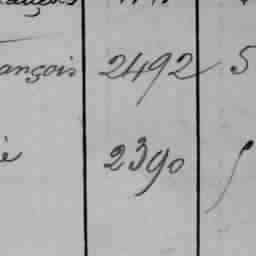 ançois 2492 5
e 2390